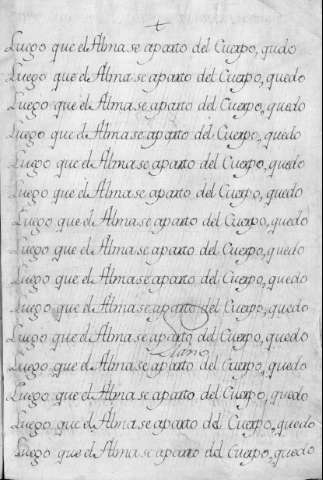 +
Luego que el Alma se aparto del Cuerpo, qudo
Luego que el Alma se aparto del Cuerpo, quedo
Luego que el Alma se aparto del Cuerpo, quedo
Luego que el Alma se aparto del Cuerpo, quedo
Luego que el Alma se aparto del Cuerpo, quedo
Luego que el Alma se aparto del Cuerpo, quedo
Luego que el Alma se aparto del Cuerpo, quedo
Luego que el Alma se aparto del Cuerpo, quedo
Luego que el Alma se aparto del Cuerpo, quedo
Luego que el Alma se aparto del Cuerpo, quedo
Luego que el Alma se aparto del Cuerpo, quedo
Llano
Luego que el Alma se aparto del Cuerpo, quedo
Luego que el Alma se aparto del Cuerpo, quedo
Luego que el Alma se aparto del Cuerpo, quedo
Luego que el Alma se aparto del Cuerpo, quedo